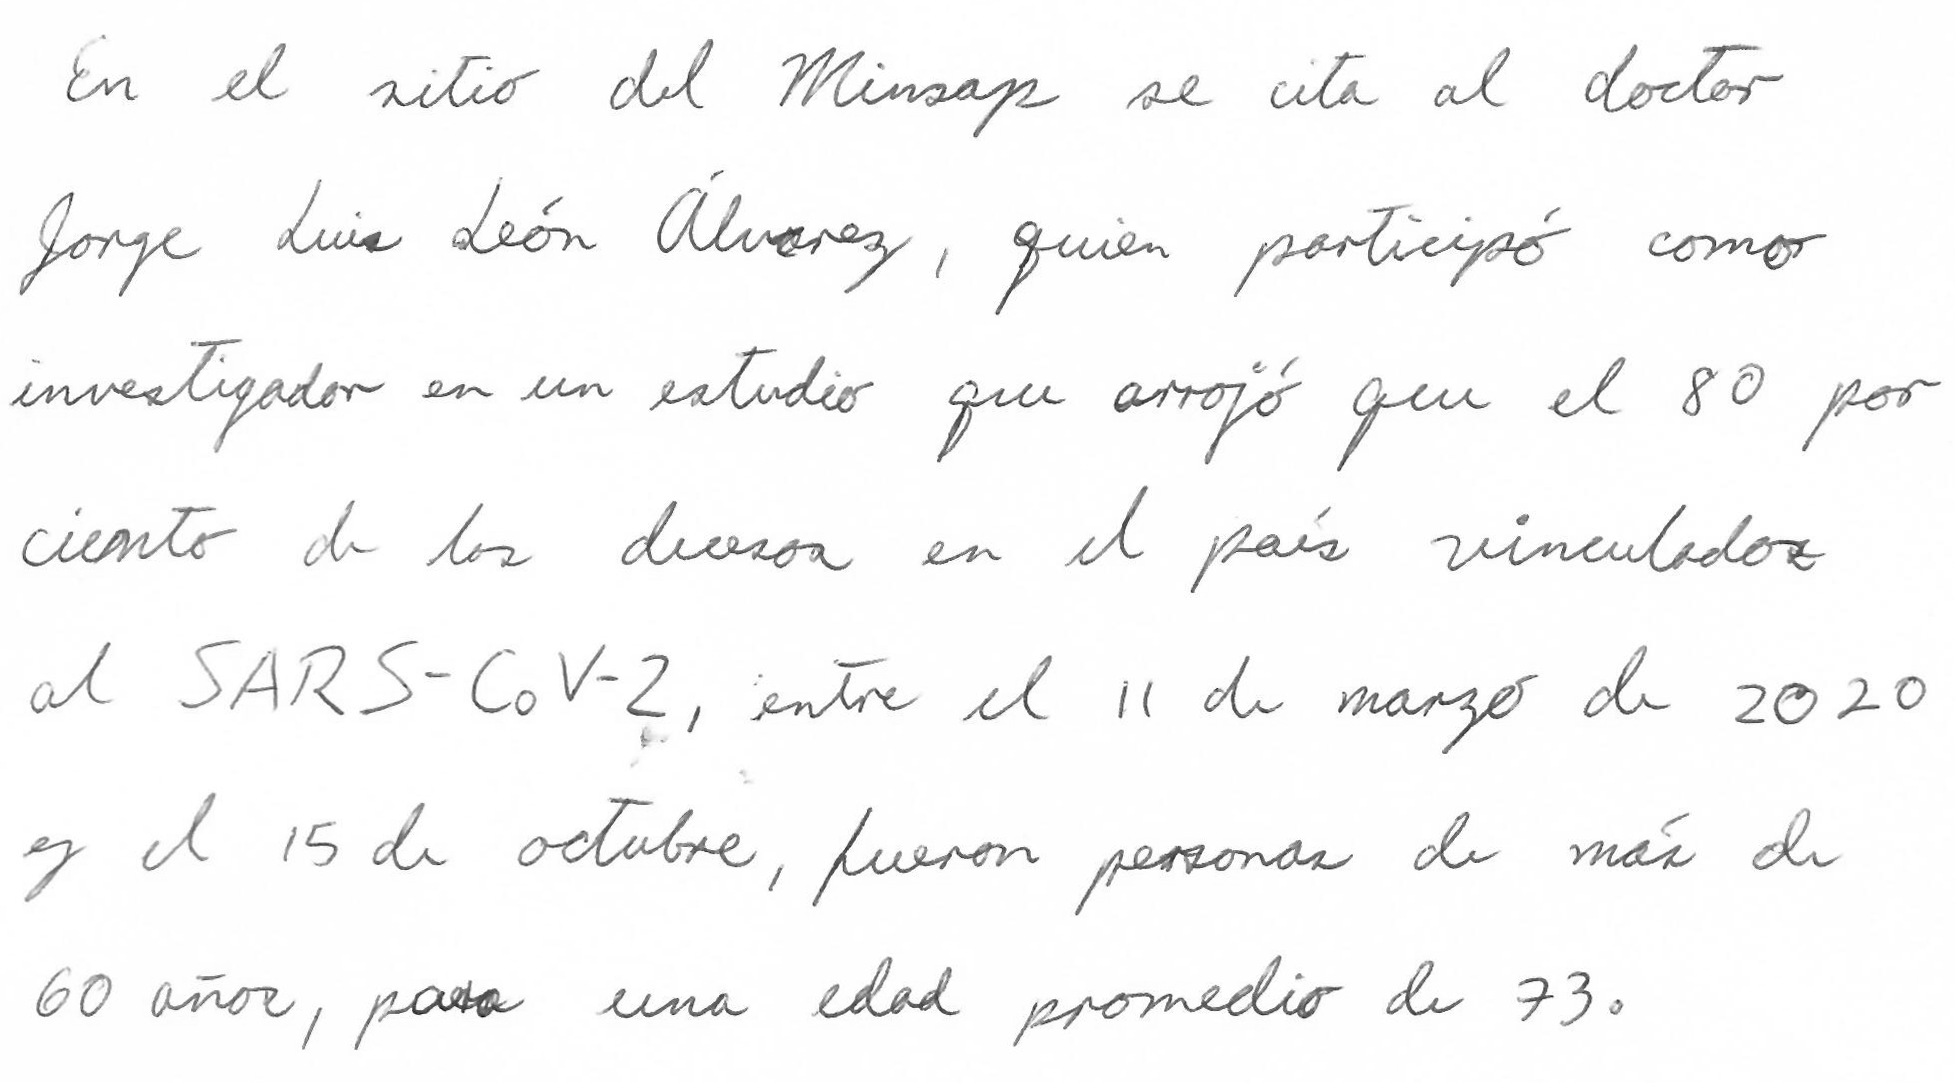 En el sitio del Minsap se cita al doctor
Jorge Luis León Álvarez, quien participó como
investigador en un estudio que arrojó que el 80 por
ciento de los decesos en el país vinculados
al SARS-CoV-2, entre el 11 de marzo de 2020
y el 15 de octubre, fueron personas de más de
60 años, para una edad promedio de 73.